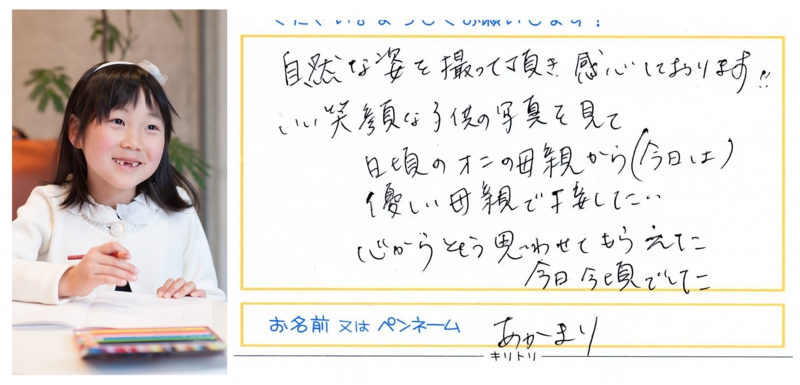 ください。よろしくお願いします!
自然な姿を撮って頂き感心しております!!
いい笑顔な子供の写真を見て
日頃のオニの母親から(今日は)
優しい母親で接したい
心からそう思わせてもらえた
今日今頃でした
お名前 又は ペンネーム あかまり
キリトリ